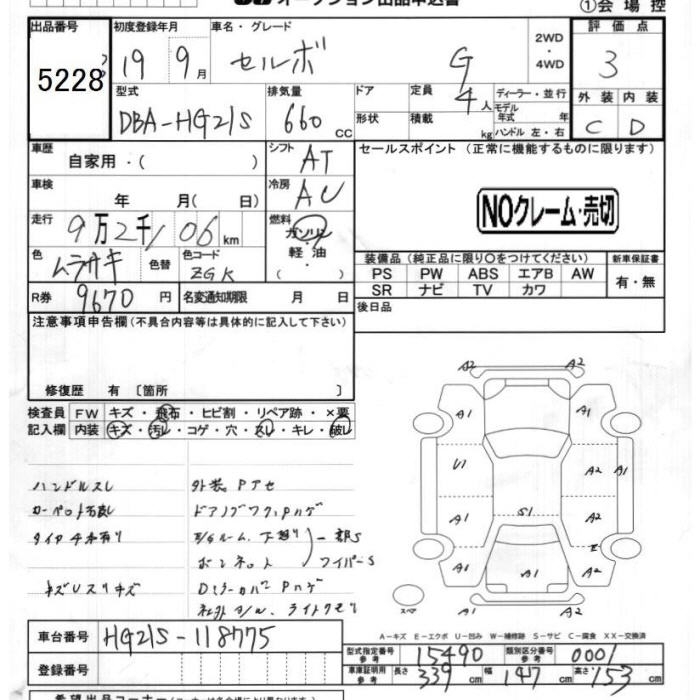 オークション出品申込書
①会場控
出品番号 初度登録年月 車名・グレード 2WD・4WD 評価点
5228 19 9月 セルボ G 3
型式 排気量 ドア 定員 4人 ディーラー・並行
DBA-HG21S 660cc 形状 積載 kg モデル年式 年式 ハンドル 左・右
外装 内装
C D
車歴 自家用・( ) シフト AT セールスポイント(正常に機能するものに限ります)
車検 年 月( 日) 冷房 AC
NOクレーム・売切
走行 9万2千106km 燃料 ガソリン・軽油・( )
色 ムラサキ 色替 色コード ZGK
装備品(純正品に限り○をつけてください) 新車保証書
PS PW ABS エアB AW 有・無
SR ナビ TV カワ
R券 9670円 名変通知期限 月 日 後日品
注意事項申告欄(不具合内容等は具体的に記入して下さい)
修復歴 有〔箇所 〕
検査員 FW キズ・飛石・ヒビ割・リペア跡・×要
記入欄 内装 キズ・汚レ・コゲ・穴・スレ・キレ・破レ
ハンドルスレ
タイヤ4本有り
A2 A2
A1 A1
U1 A2 A1
S1
A1 A2
E
A1 A1 A1
A2
スペア
A-キズ E-エクボ U-凹み W-補修跡 S-サビ C-腐食 XX-交換済
車台番号 HG21S-118775
型式指定番号 参考 15490 類別区分番号 参考 0001
登録番号
車庫証明用 参考 長さ 339cm 幅 147cm 高さ 153cm
希望出品コーナー